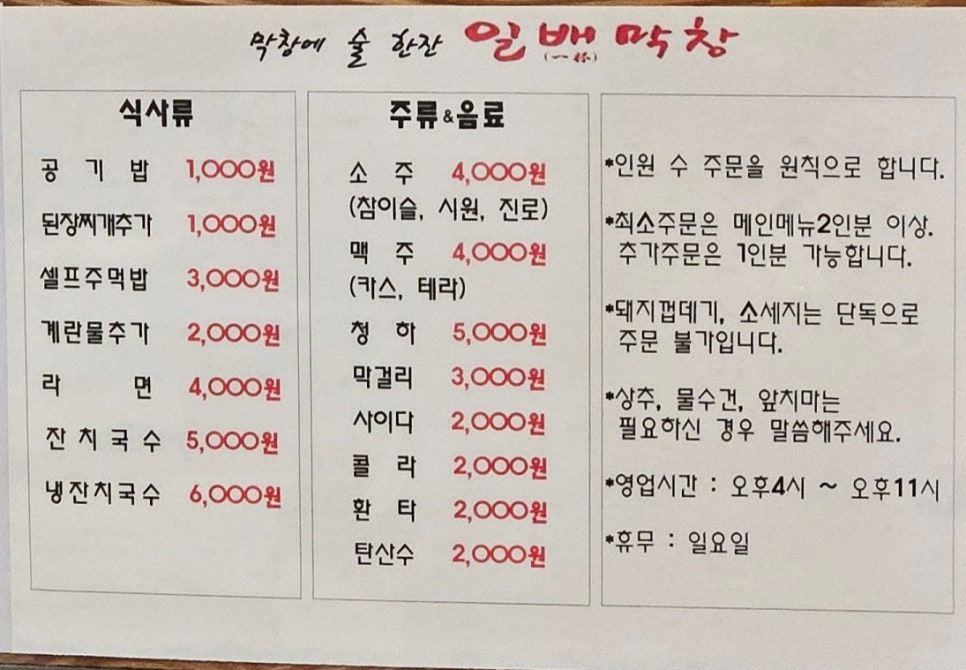 막창에 술 한잔 일배막창
(一杯)
식사류
공기밥 1,000원
된장찌개추가 1,000원
셀프주먹밥 3,000원
계란물추가 2,000원
라면 4,000원
잔치국수 5,000원
냉잔치국수 6,000원
주류&음료
소주 4,000원
(참이슬, 시원, 진로)
맥주 4,000원
(카스, 테라)
청하 5,000원
막걸리 3,000원
사이다 2,000원
콜라 2,000원
환타 2,000원
탄산수 2,000원
*인원 수 주문을 원칙으로 합니다.
*최소주문은 메인메뉴2인분 이상.
추가주문은 1인분 가능합니다.
*돼지껍데기, 소세지는 단독으로
주문 불가입니다.
*상추, 물수건, 앞치마는
필요하신 경우 말씀해주세요.
*영업시간 : 오후4시 ~ 오후11시
*휴무 : 일요일